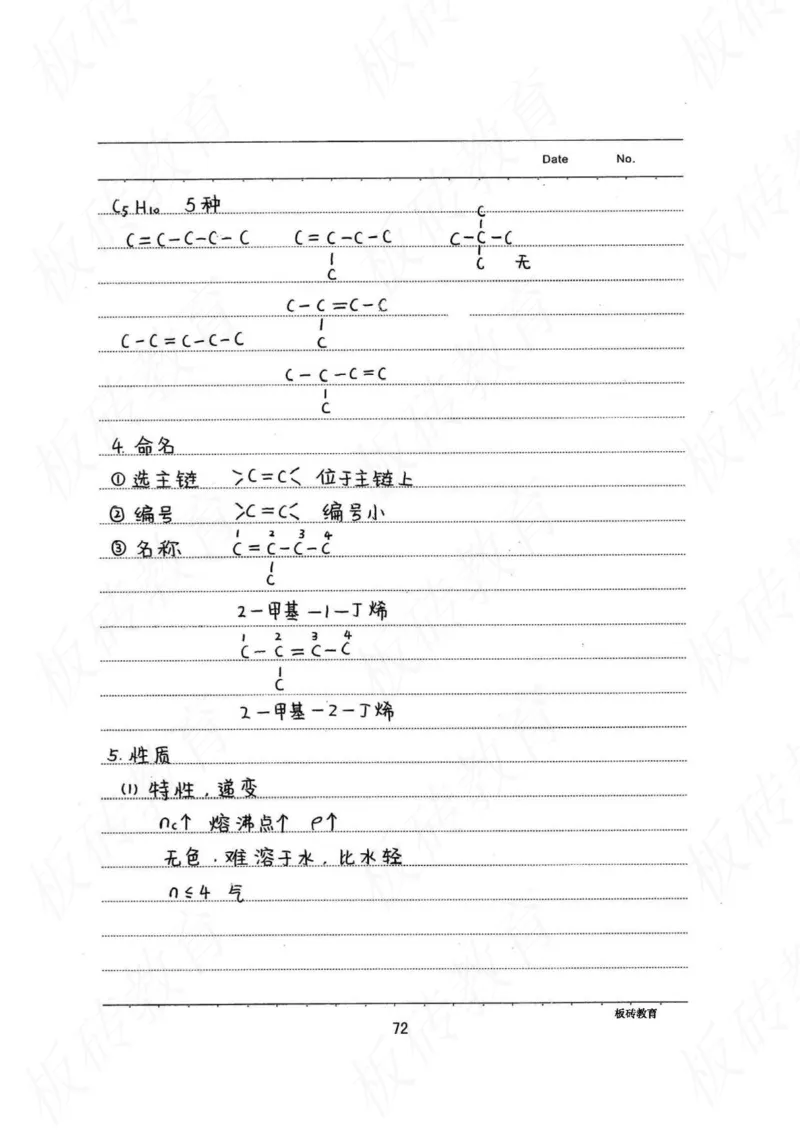 Date No.
C₅H₁₀ 5种
C
|
C=C-C-C-C C=C-C-C C-C-C
| |
C C 无
C-C=C-C
|
C-C=C-C-C C
C-C-C=C
|
C
4. 命名
① 选主链 >C=C< 位于主链上
② 编号 >C=C< 编号小
1 2 3 4
③ 名称 C=C-C-C
|
C
2-甲基-1-丁烯
1 2 3 4
C-C=C-C
|
C
2-甲基-2-丁烯
5. 性质
(1) 特性,递变
nc↑ 熔沸点↑ ρ↑
无色.难溶于水,比水轻
n≤4 气
板砖教育
72